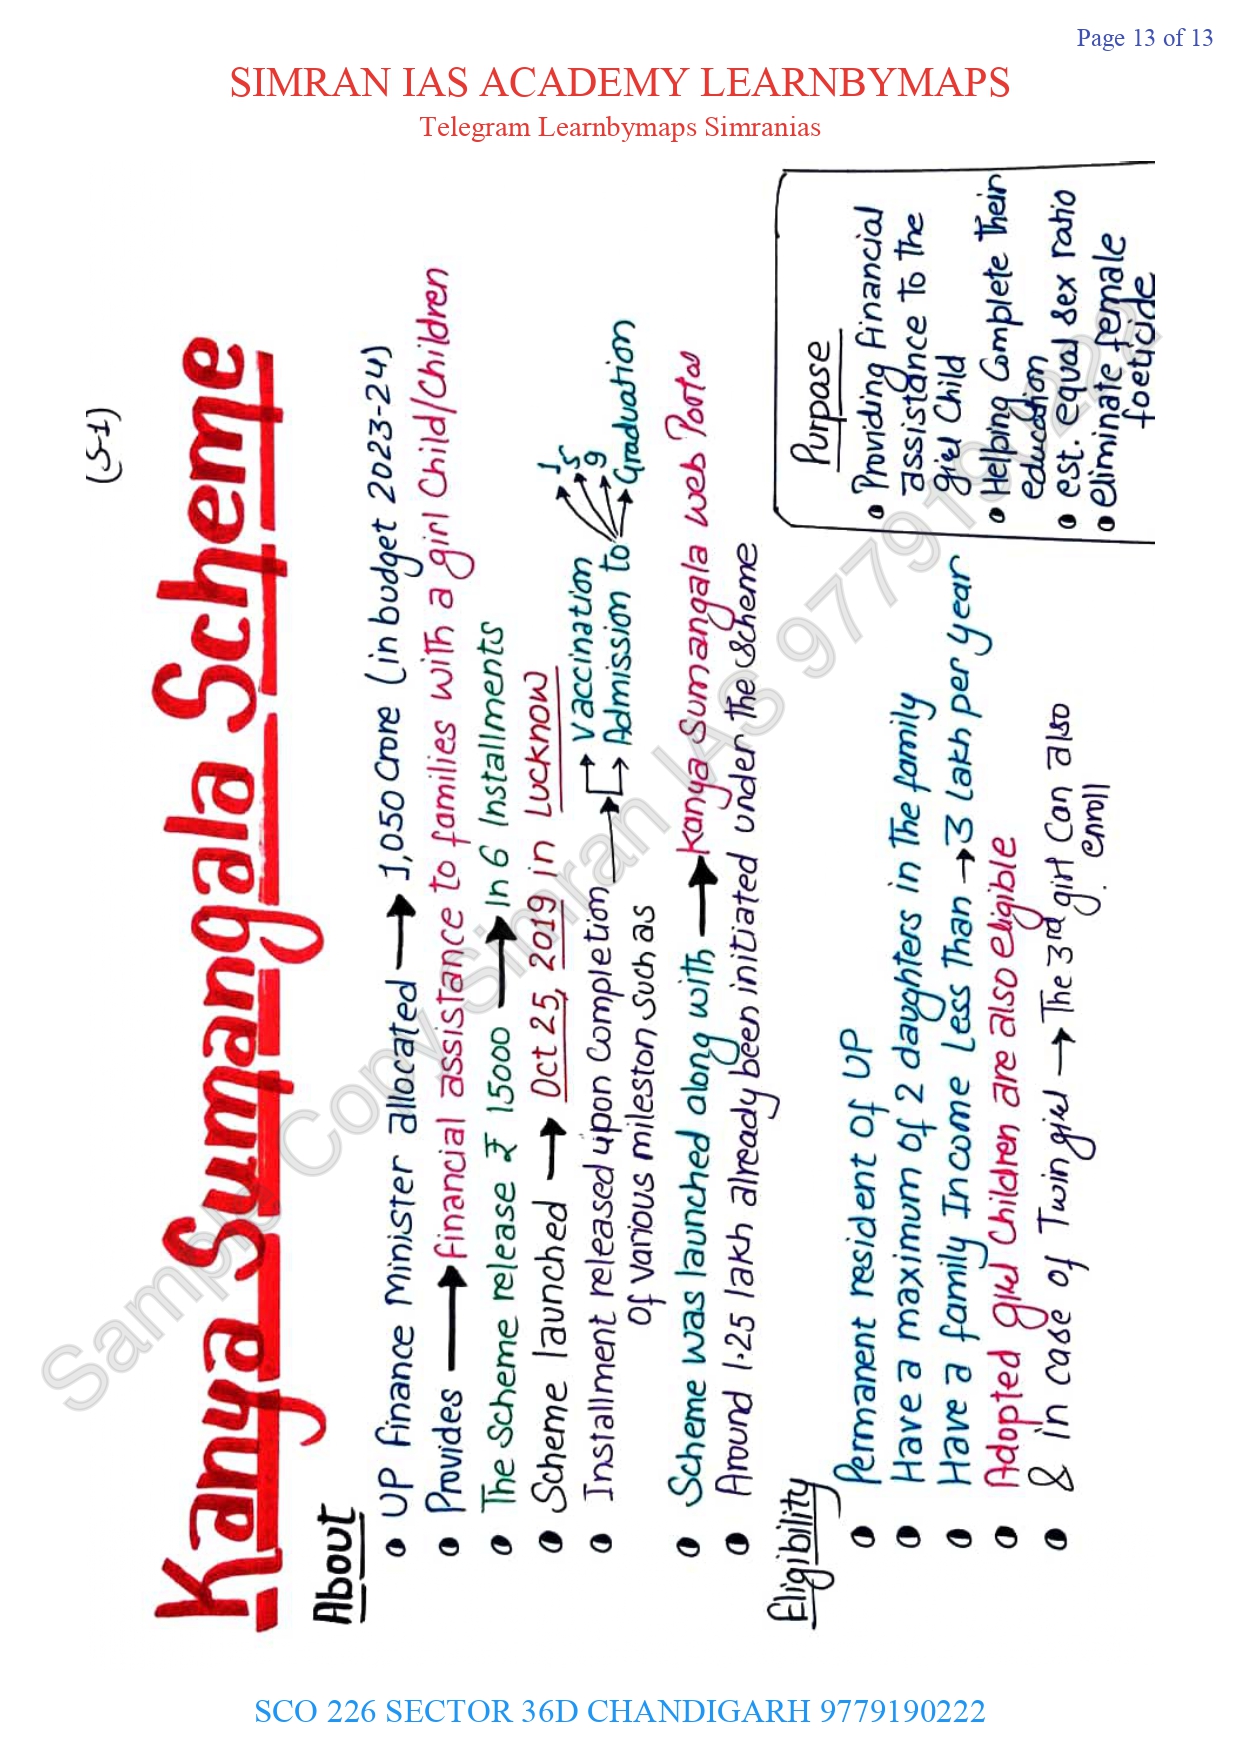 Page 13 of 13
SIMRAN IAS ACADEMY LEARNBYMAPS
Telegram Learnbymaps Simranias
(S-1)
Kanya Sumangala Scheme
About
• UP Finance Minister allocated → 1,050 Crore (in budget 2023-24)
• Provides → financial assistance to families with a girl Child/Children
• The Scheme release ₹ 15000 → In 6 Installments
• Scheme launched → Oct 25, 2019 in Lucknow
• Installment released upon Completion → → Vaccination
of various mileston such as → Admission to → 1
5
9
Graduation
• Scheme was launched along with → Kanya Sumangala web Portal
• Around 1.25 lakh already been initiated under the Scheme
Eligibility
• Permanent resident of UP
• Have a maximum of 2 daughters in the family
• Have a family Income Less Than → 3 lakh per year
• Adopted girl Children are also eligible
• & in case of Twin girl → The 3rd girl Can also
enroll
Purpase
• Providing financial
assistance to the
girl Child
• Helping Complete their
education
• est. equal sex ratio
• eliminate female
foeticide
Sample Copy Simran IAS 9779190222
SCO 226 SECTOR 36D CHANDIGARH 9779190222